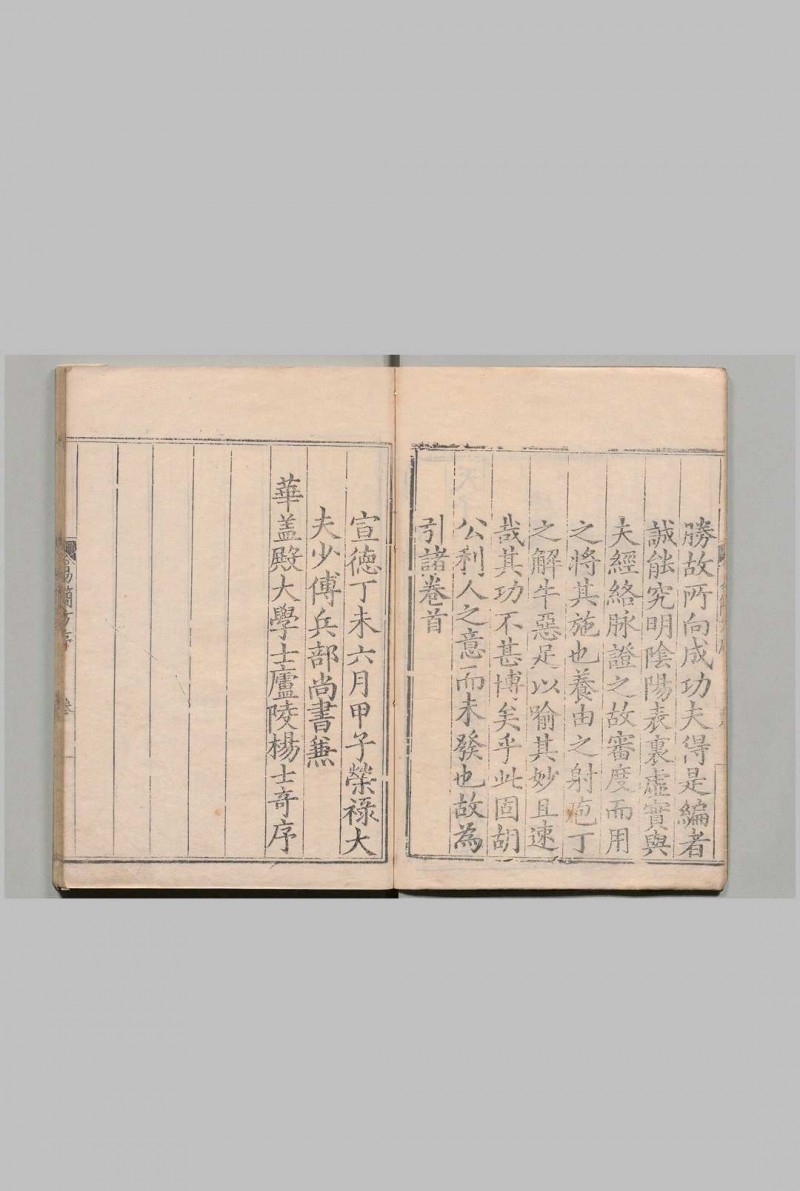 勝故所向成功夫得是編者
誠能究明陰陽表裏虛實與
夫經絡脉證之故審度而用
之將其施也養由之射庖丁
之解牛惡足以喻其妙且速
哉其功不甚博矣乎此固胡
公利人之意而未發也故為
引諸卷首
宣德丁未六月甲子榮祿大
夫少傅兵部尚書兼
華盖殿大學士廬陵楊士奇序
方序